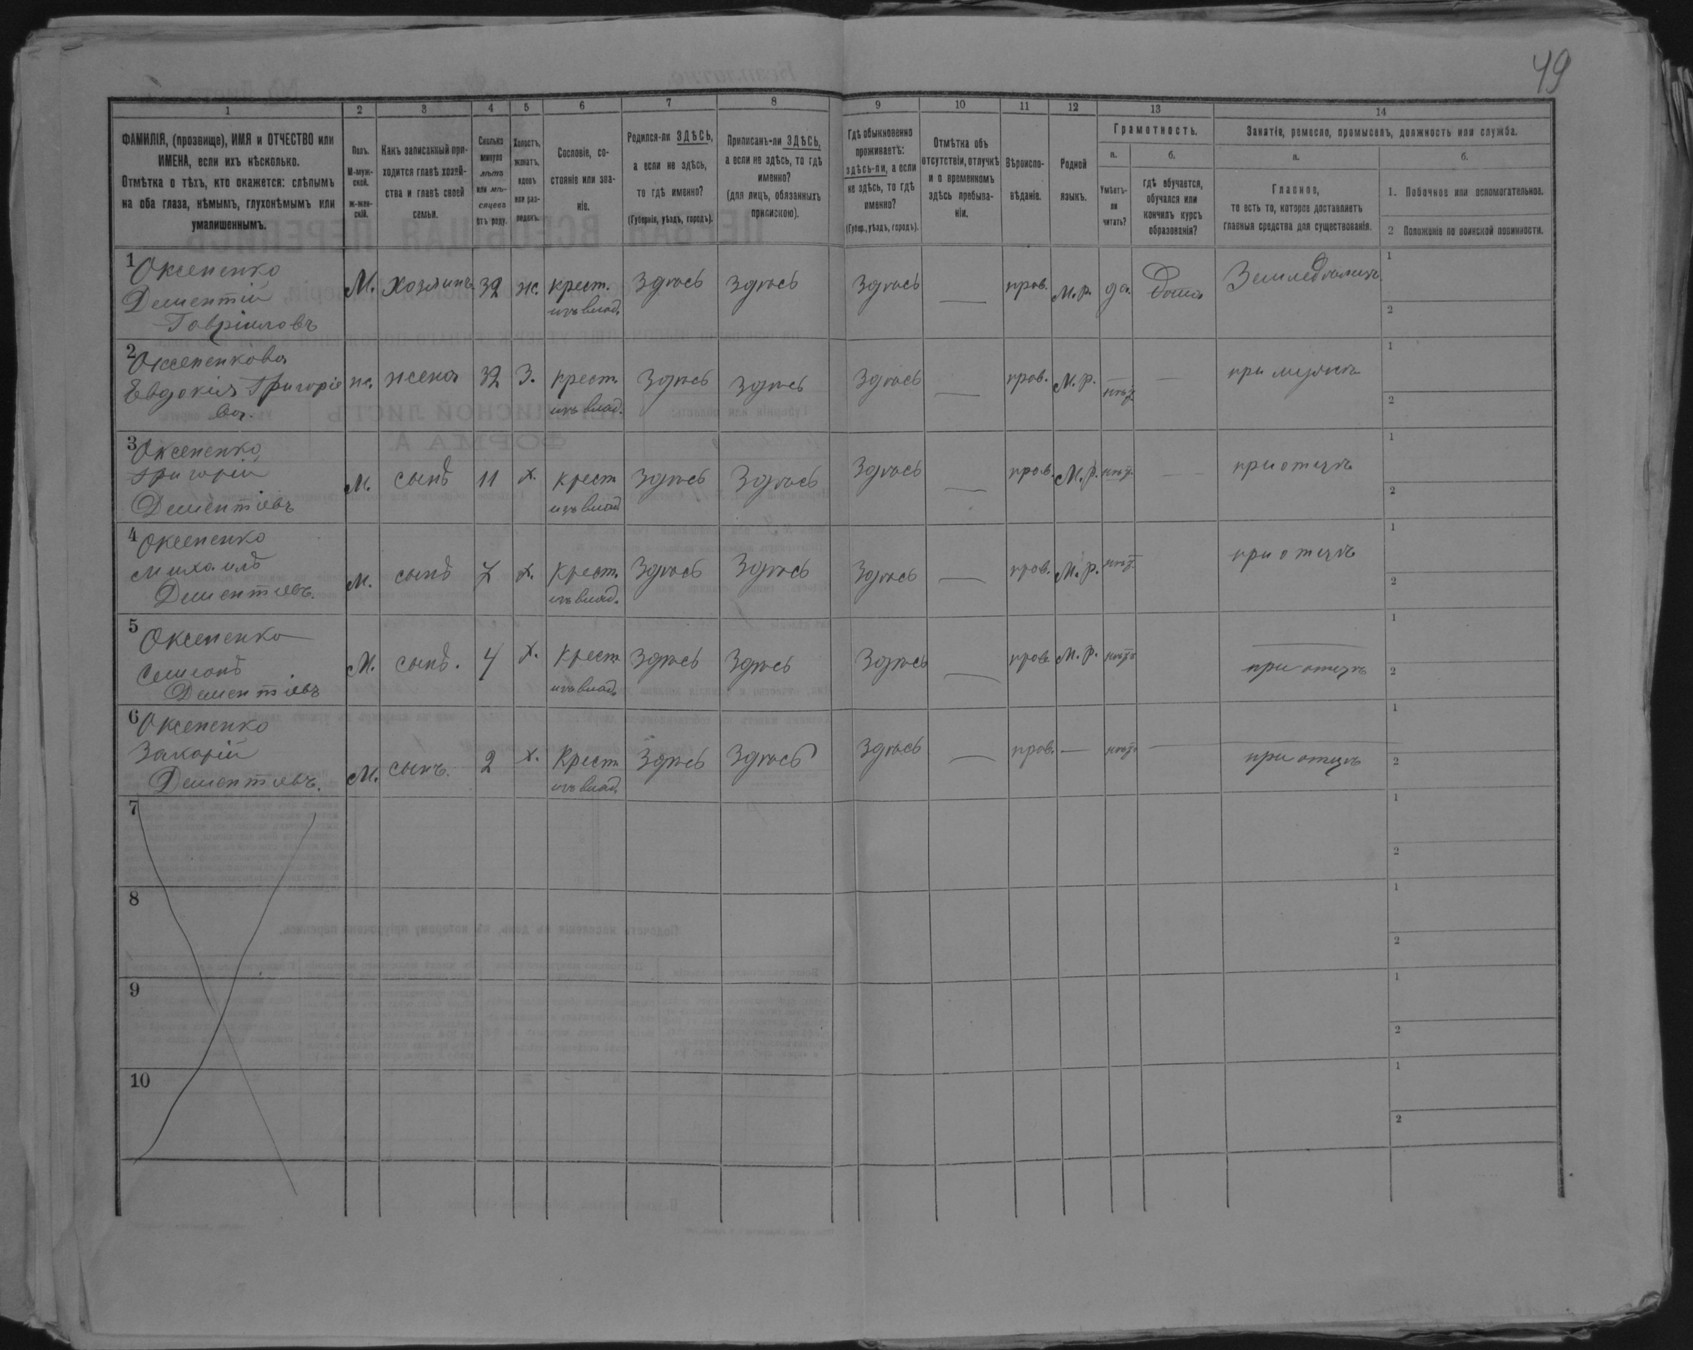 49
1 2 3 4 5 6 7 8 9 10 11 12 13 14
ФАМИЛІЯ, (прозвище), ИМЯ и ОТЧЕСТВО или
ИМЕНА, если ихъ нѣсколько.
Отмѣтка о тѣхъ, кто окажется: слѣпымъ
на оба глаза, нѣмымъ, глухонѣмымъ или
умалишеннымъ.
Полъ.
М-муж-
ской.
ж-жен-
скій.
Какъ записанный при-
ходится главѣ хозяй-
ства и главѣ своей
семьи.
Сколько
минуло
лѣтъ
или мѣ-
сяцевъ
отъ роду.
Холостъ,
женатъ,
вдовъ
или раз-
веденъ.
Сословіе, со-
стояніе или зва-
ніе.
Родился-ли ЗДѢСЬ,
а если не здѣсь,
то гдѣ именно?
(Губернія, уѣздъ, городъ).
Приписанъ-ли ЗДѢСЬ,
а если не здѣсь, то гдѣ
именно?
(для лицъ, обязанныхъ
припискою).
Гдѣ обыкновенно
проживаетъ:
здѣсь-ли, а если
не здѣсь, то гдѣ
именно?
(Губер., уѣздъ, городъ).
Отмѣтка объ
отсутствіи, отлучкѣ
и о временномъ
здѣсь пребыва-
ніи.
Вѣроиспо-
вѣданіе.
Родной
языкъ.
Грамотность.
а.
Умѣетъ-
ли
читать?
б.
гдѣ обучается,
обучался или
кончилъ курсъ
образованія?
Занятіе, ремесло, промыселъ, должность или служба.
а.
Главное,
то есть то, которое доставляетъ
главныя средства для существованія.
б.
1. Побочное или вспомогательное.
2 Положеніе по воинской повинности.
1 Оксененко
Дементій
Гавріиловъ
М. хозяинъ 32 ж. крест. Здѣсь Здѣсь Здѣсь — прав. М.р. да Дома Земледѣлецъ
изъ влад.
1
2
2 Оксененкова
Евдокія Григоріе
ва.
ж. жена 32 З. крест. Здѣсь Здѣсь Здѣсь — прав. М.р. нѣтъ — при мужѣ
изъ влад.
1
2
3 Оксененко
Григорій
Дементіевъ
М. сынъ 11 х. крест Здѣсь Здѣсь Здѣсь — прав. М.р. нѣтъ — при отцѣ
изъ влад
1
2
4 Оксененко
Михаилъ
Дементіевъ.
М. сынъ 7 х. крест. Здѣсь Здѣсь Здѣсь — прав. М.р. нѣтъ при отцѣ
изъ влад.
1
2
5 Оксененко
Семионъ
Дементіевъ
М. сынъ. 4 х. крест Здѣсь Здѣсь Здѣсь — прав М.р. нѣтъ — при отцѣ
изъ влад.
1
2
6 Оксененко
Захарій
Дементіевъ.
М. сынъ. 2 х. Крест Здѣсь Здѣсь Здѣсь — прав. — нѣтъ — при отцѣ
изъ влад.
1
2
7
1
2
8
1
2
9
1
2
10
1
2